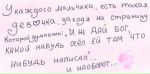 У каждого мальчика, есть такая
девочка, заходя на страницу
Которой думаешь: "И не дай бог
какой нибудь осёл ей там что
нибудь написал"...
и наоборот...